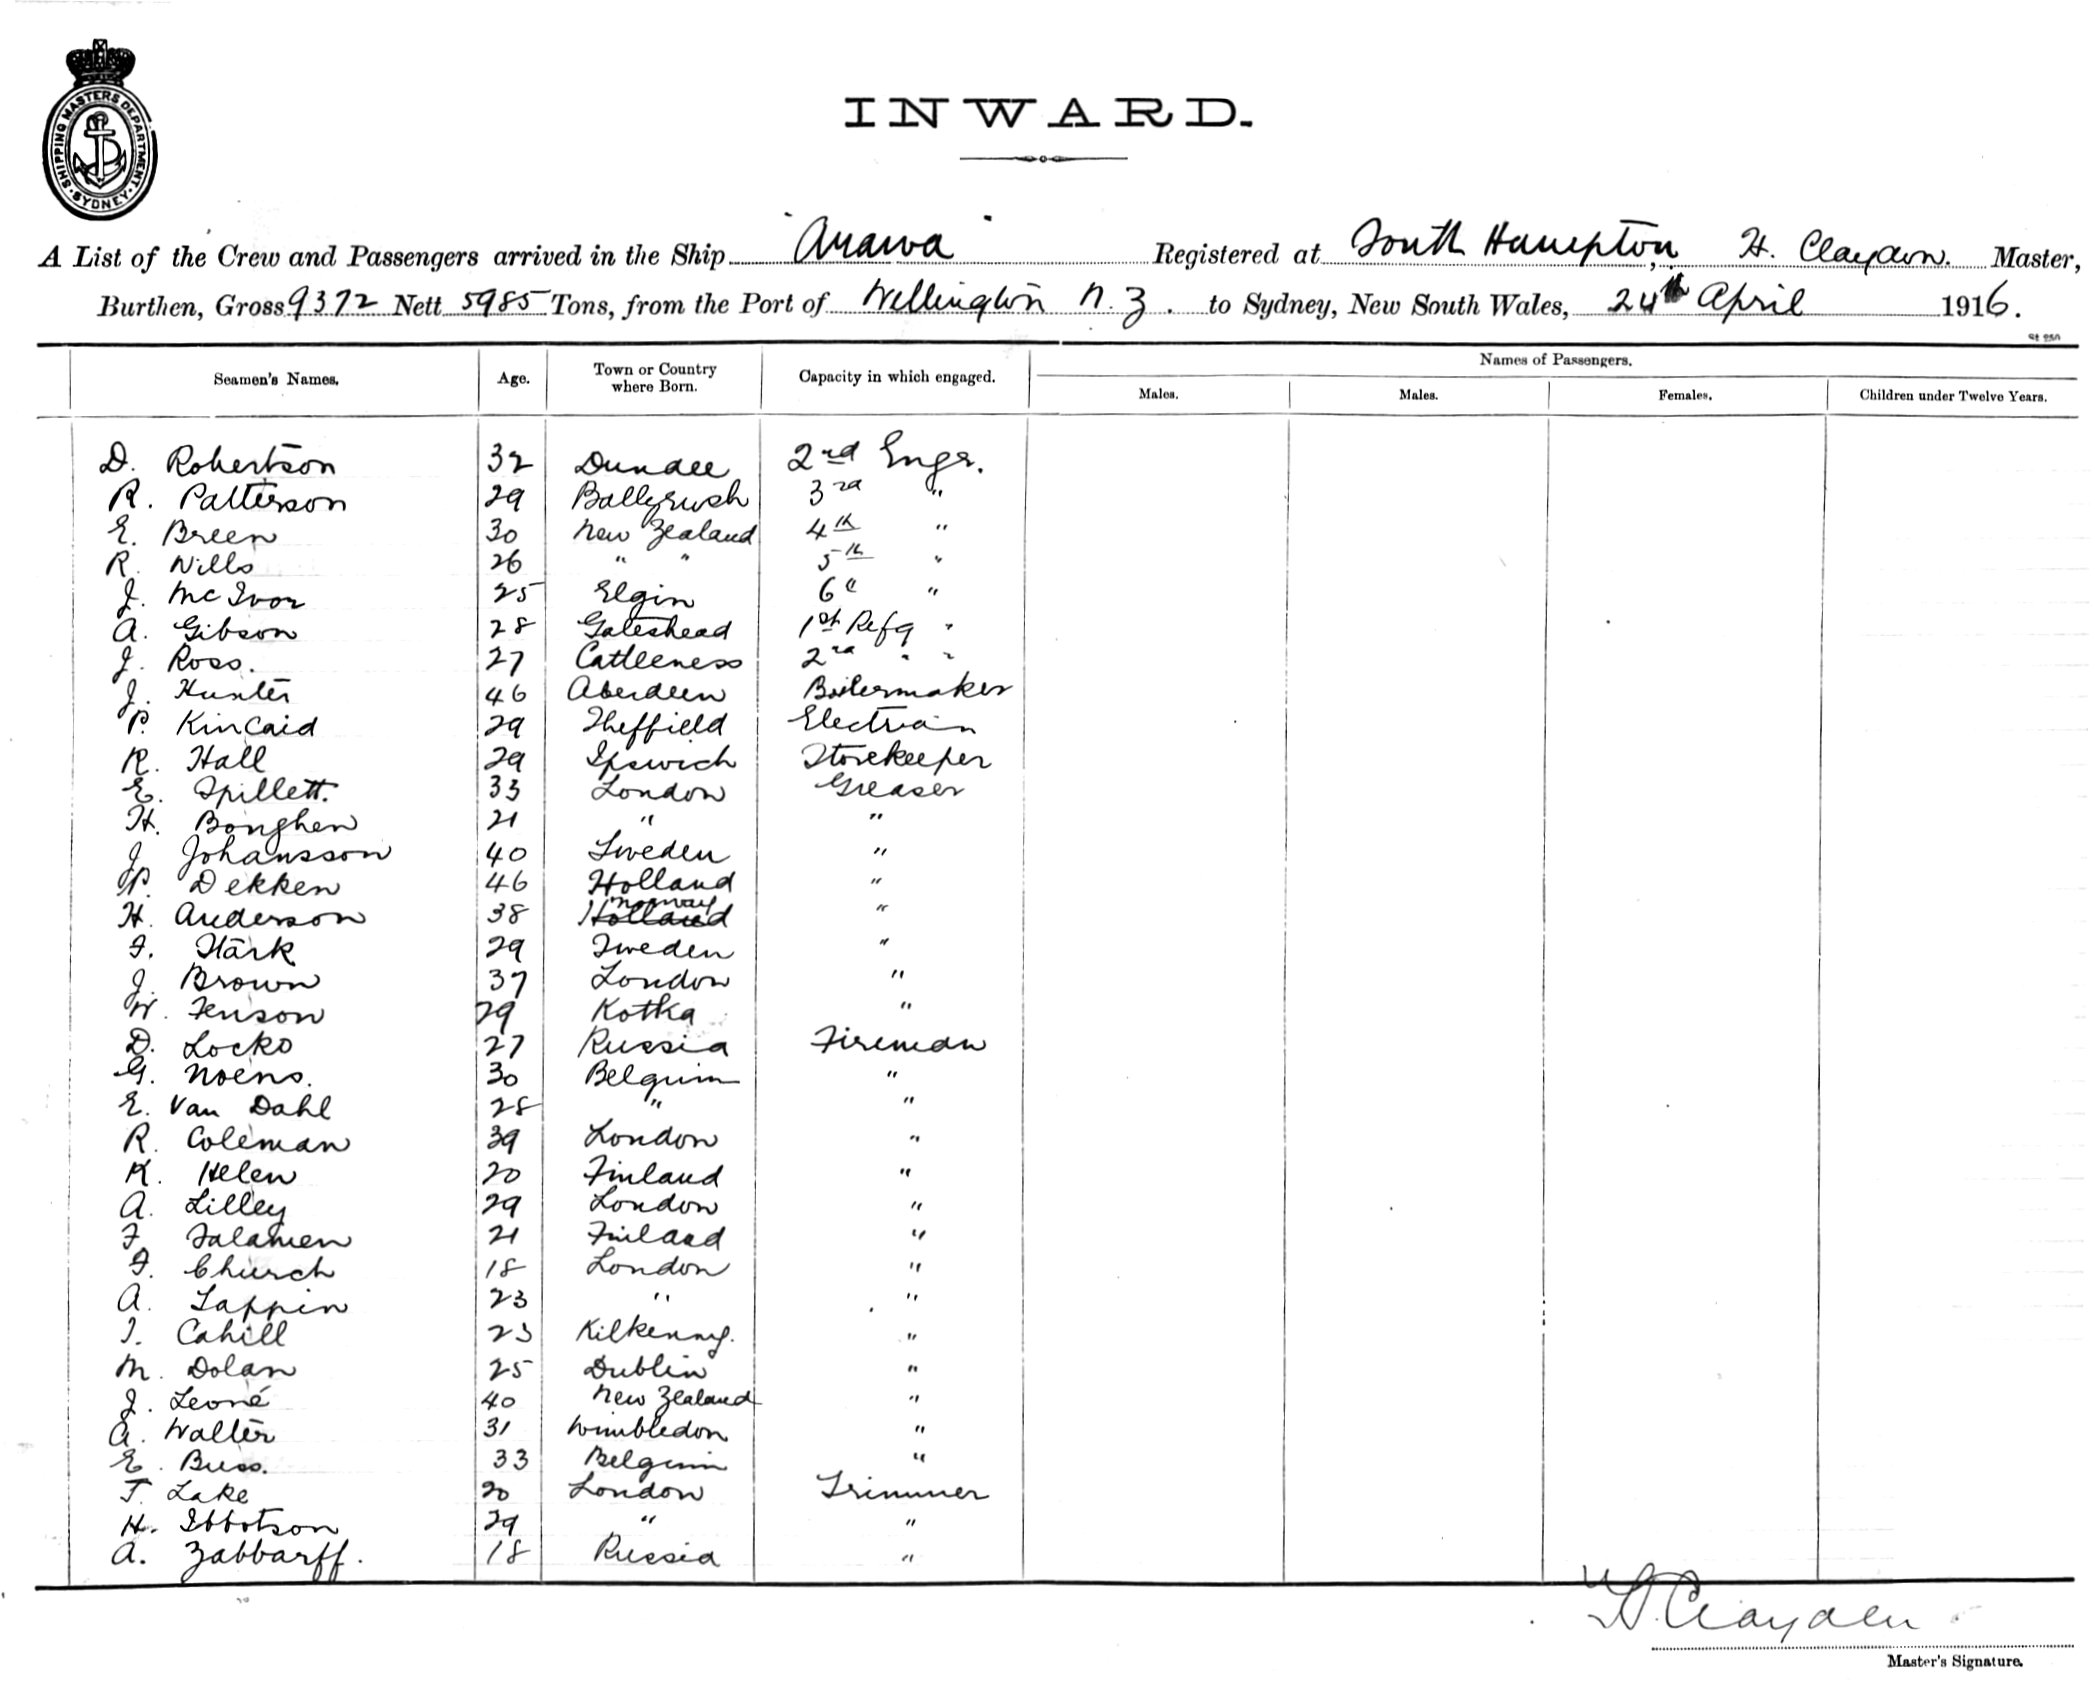 SHIPPING MASTERS DEPARTMENT
SYDNEY
INWARD.
A List of the Crew and Passengers arrived in the Ship "Arawa" Registered at South Hampton, H. Claydon. Master,
Burthen, Gross 9372 Nett 5985 Tons, from the Port of Wellington N.Z. to Sydney, New South Wales, 24th April 1916.
Names of Passengers.
Seamen's Names. Age. Town or Country where Born. Capacity in which engaged. Males. Males. Females. Children under Twelve Years.
D. Robertson 32 Dundee 2nd Engr.
R. Patterson 29 3rd "
E. Breen 30 New Zealand 4th "
R. Wills 26 " " 5th "
J. McIvor 25 Elgin 6" "
A. Gibson 28 Gateshead 1st Refg "
J. Ross. 27 2nd " "
J. Hunter 46 Aberdeen Boilermaker
P. Kincaid 29 Sheffield
R. Hall 29 Ipswich Storekeeper
E. Spillett. 33 London Greaser
H. Bonghen 21 " "
J. Johansson 40 Sweden "
P. Dekken 46 Holland "
H. Anderson 38 Holland Norway "
F. Stärk 29 Sweden "
J. Brown 37 London "
W. 29 Kotka "
D. Locko 27 Russia Fireman
G. Noens. 30 Belguim "
E. Van Dahl 28 " "
R. Coleman 39 London "
K. Helen 20 Finland "
A. Lilley 29 London "
F. Salamen 21 Finland "
F. Church 18 London "
A. Tappin 23 " "
T. Cahill 23 Kilkenny. "
M. Dolan 25 Dublin "
J. Leoné 40 New Zealand "
A. Walter 31 Wimbledon "
E. Buss. 33 Belguim "
T. Lake 20 London Trimmer
H. Ibbotson 29 " "
A. Zabbarff. 18 Russia "
H. Clayden
Master's Signature.